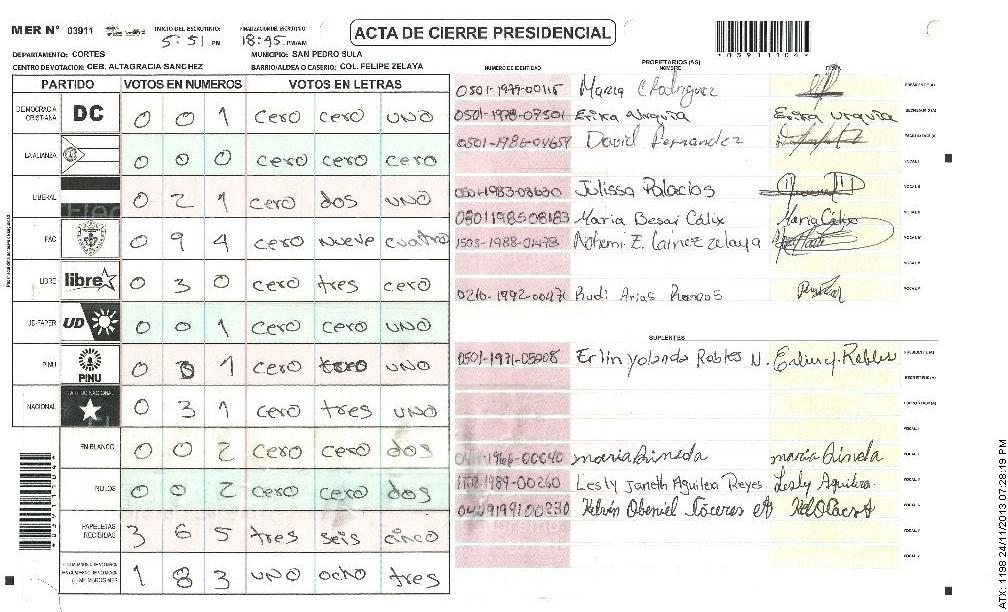 MER Nº 03911 INICIO DEL ESCRUTINIO: 5:51 PM FINALIZACION DEL ESCRUTINIO: 18:45 PM/AM
ACTA DE CIERRE PRESIDENCIAL
DEPARTAMENTO: CORTES MUNICIPIO: SAN PEDRO SULA
CENTRO DE VOTACION: CEB. ALTAGRACIA SANCHEZ BARRIO/ALDEA O CASERIO: COL. FELIPE ZELAYA
PARTIDO VOTOS EN NUMEROS VOTOS EN LETRAS
DEMOCRACIA CRISTIANA DC 0 0 1 cero cero uno
LA ALIANZA 0 0 0 cero cero cero
LIBERAL 0 2 1 cero dos uno
PAC 0 9 4 cero nueve cuatro
LIBRE libre 0 3 0 cero tres cero
UD-FAPER UD 0 0 1 cero cero uno
PINU PINU 0 1 cero uno
NACIONAL 0 3 1 cero tres uno
EN BLANCO 0 0 2 cero cero dos
NULOS 0 0 2 cero cero dos
PAPELETAS RECIBIDAS 3 6 5 tres seis cinco
1 8 3 uno ocho tres
NUMERO DE IDENTIDAD PROPIETARIOS (AS) NOMBRE FIRMA
Maria C Rodriguez PRESIDENTE (A)
0501-1978-07501 Erika Urquia Erika Urquia SECRETARIO (A)
0501-1986-04659 David Fernandez
VOCAL I
Julissa Palacios VOCAL II
0501198508183 Maria Besai Cálix Maria Calix
1503-1988-01478 Nohemi E. Lainez Zelaya
Rudi Arias Ramos
SUPLENTES
0501-1971-05908 Erlin Yolanda Robles N. Erlin Y. Robles PRESIDENTE (A)
SECRETARIO (A)
maria Pineda maria Pineda
1989-00260 Lesly Janeth Aguilera Reyes Lesly Aguilera
Kelvin Obeniel Cáceres
ATX: 1198 24/11/2013 07:28:19 PM